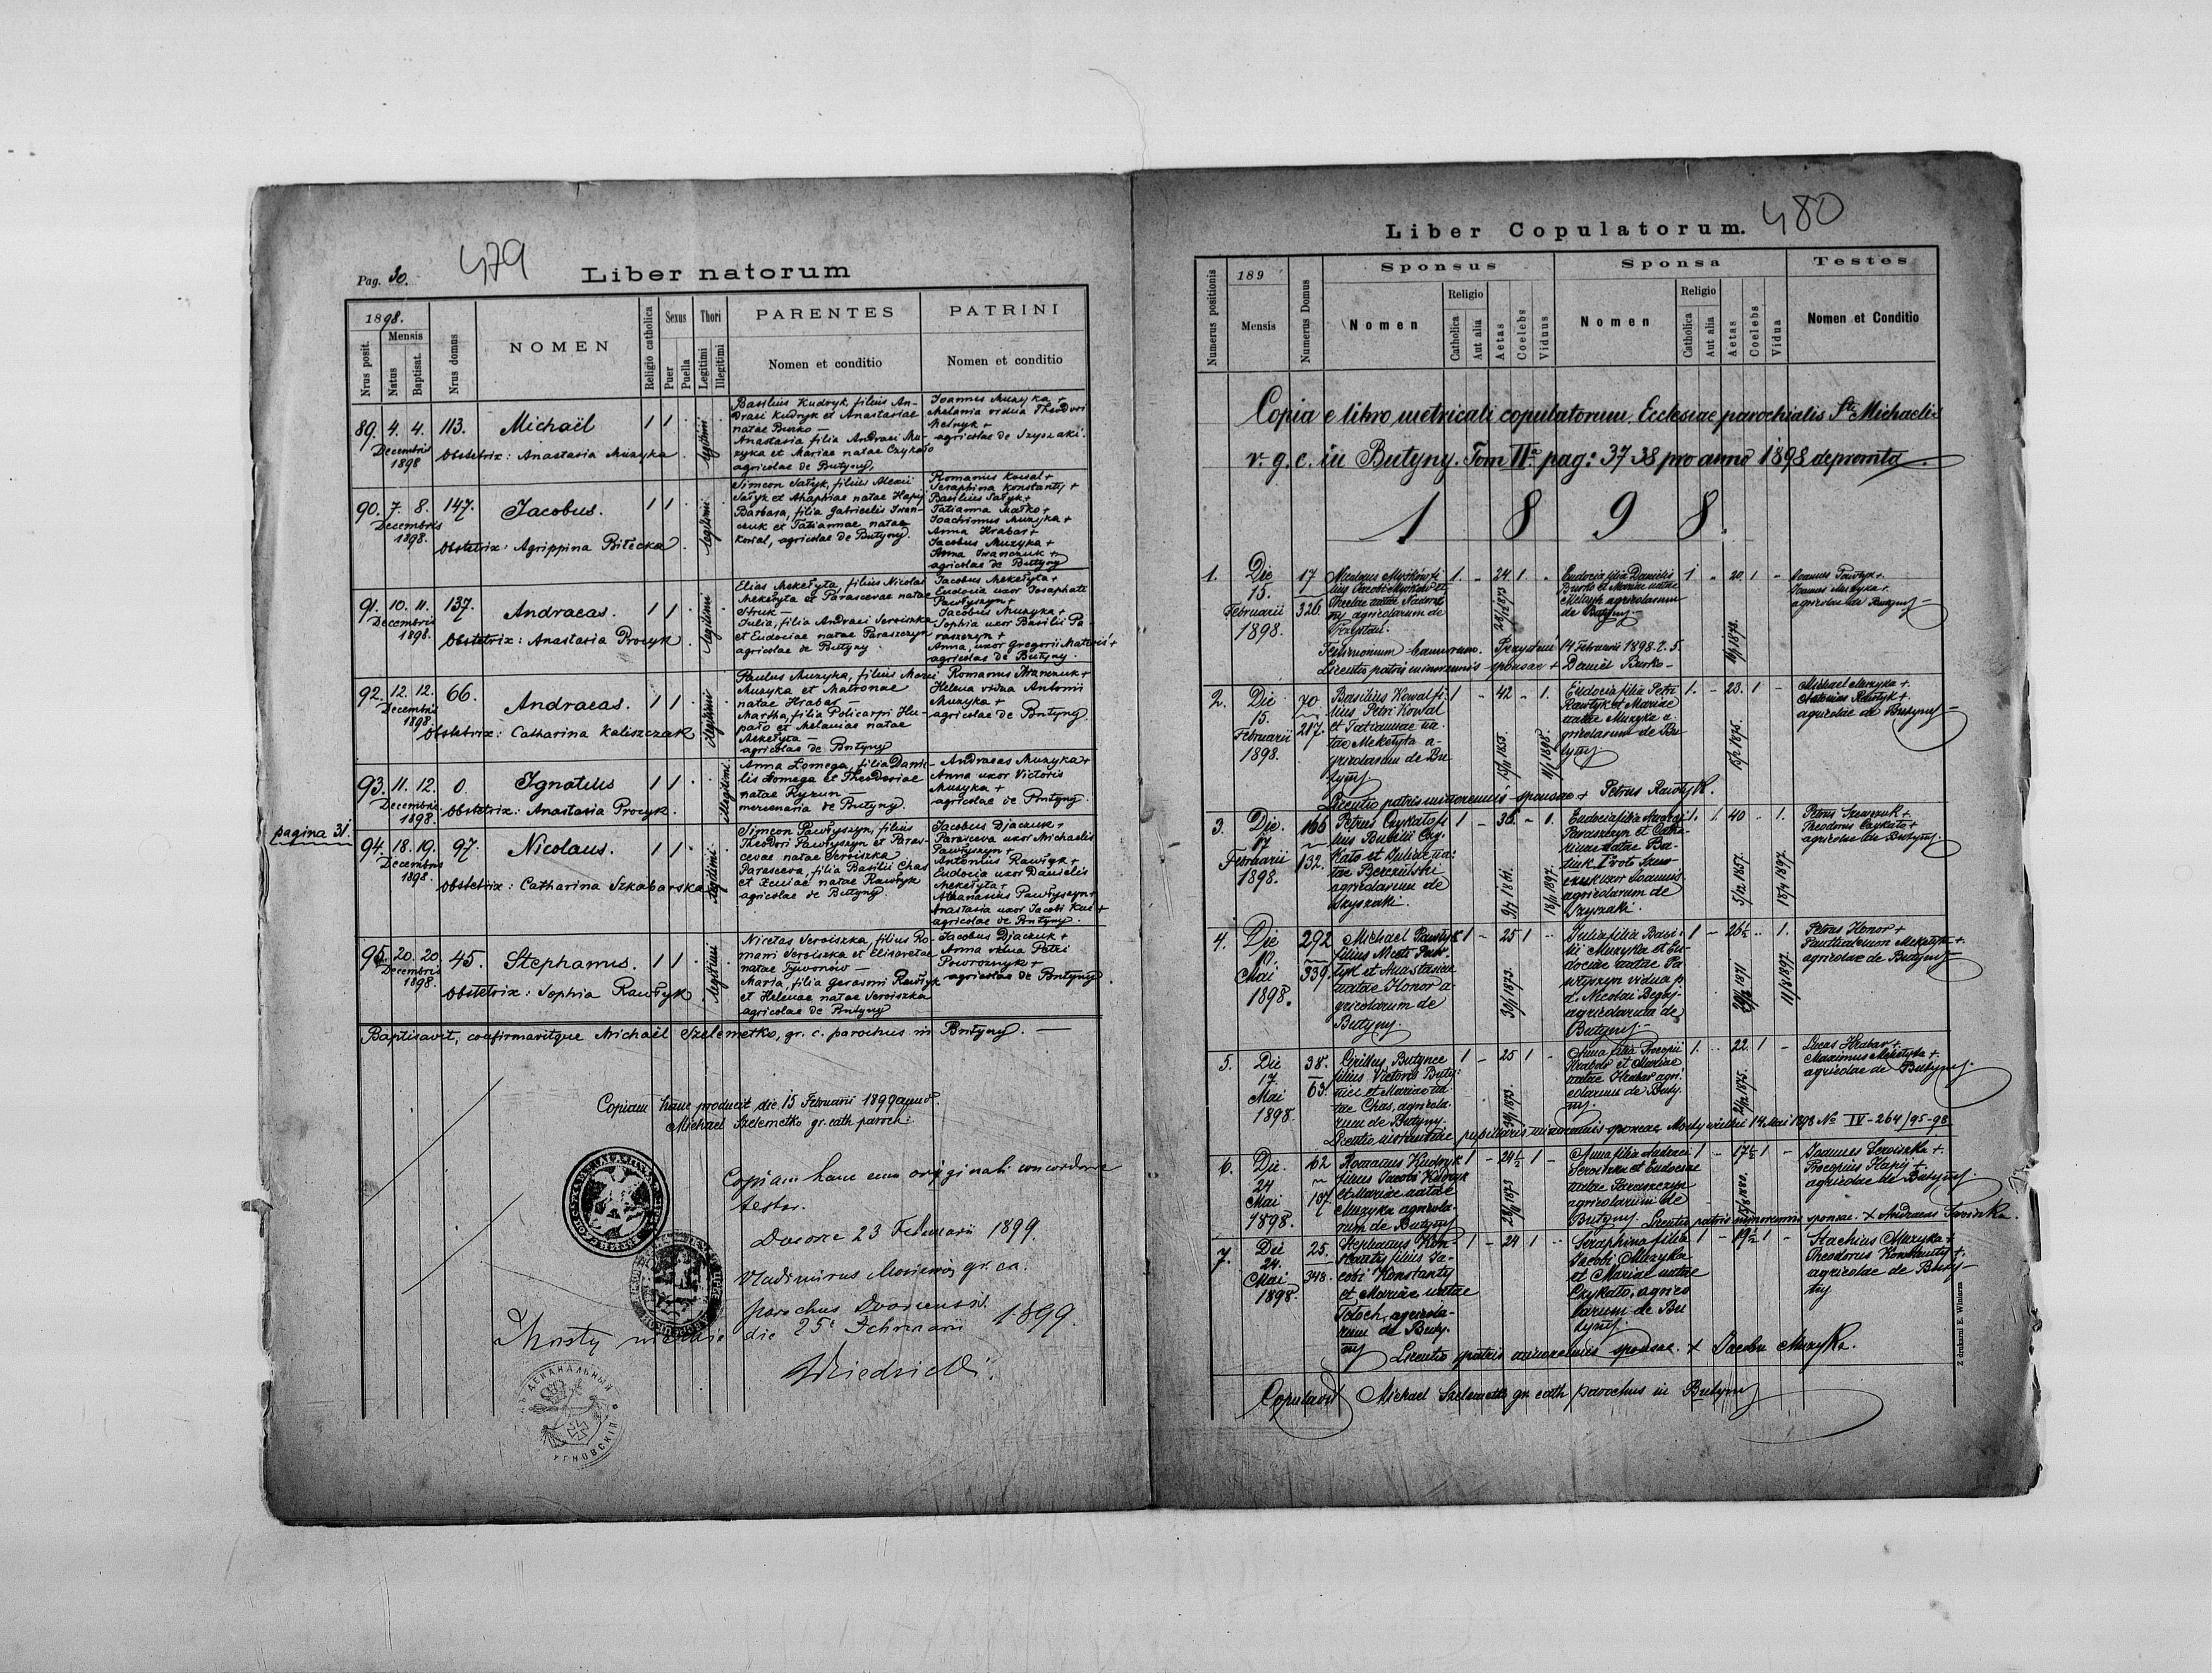 479
Pag. 30.
Liber natorum
1898.
Nrus posit.
Mensis
Natus
Baptisat.
Nrus domus
NOMEN
Religio catholica
Sexus
Puer
Puella
Thori
Legitimi
Illegitimi
PARENTES
Nomen et conditio
PATRINI
Nomen et conditio
89. 4. 4. 113. Michaël 1 1
Decembris
1898
Obstetrix: Anastasia Muzyka
legitimi
Basilius Kudryk, filius An-
draei Kudryk et Anastasiae
natae Burko —
Anastasia filia Andraei Mu-
zyka et Mariae natae Czykało
agricolae de Butyny,
Joannes Muzyka +
Melania vidua Theodori
Melnyk +
agricolae de Szyszaki.
90. 7. 8. 147. Jacobus. 1 1
Decembris
1898.
Obstetrix: Agrippina Biłecka
legitimi
Simeon Sałyk, filius Alexii
Sałyk et Ahaphiae natae Hapij
Barbara, filia Gabrielis Iwan-
czuk et Tatiannae natae
Kowal, agricolae de Butyny.
Romanus Kowal +
Seraphina Konstanty +
Basilius Sałyk +
Tatianna Małko +
Joachimus Muzyka +
Anna Hrabar +
Jacobus Muzyka +
Anna Iwanczuk +
agricolae de Butyny
91. 10. 11. 137. Andraeas. 1 1
Decembris
1898.
Obstetrix: Anastasia Procyk
legitimi
Elias Mekełyta, filius Nicolai
Mekełyta et Parascevae natae
Struk —
Julia, filia Andraei Seroiszka
et Eudociae natae Paraszczyn
agricolae de Butyny
Jacobus Mekełyta +
Eudocia uxor Josaphati
Pawłyszyn +
Jacobus Muzyka +
Sophia uxor Basilii Pa-
raszczyn +
Anna, uxor Gregorii Matwiis +
agricolae de Butyny
92. 12. 12. 66. Andraeas. 1 1
Decembris
1898.
Obstetrix: Catharina Kaliszczak
legitimi
Paulus Muzyka, filius Marci
Muzyka et Matronae
natae Hrabar —
Martha, filia Policarpi Hu-
pało et Melaniae natae
Mekełyta —
agricolae de Butyny
Romanus Iwanczuk +
Helena vidua Antonii
Muzyka +
agricolae de Butyny
93. 11. 12. 0. Ignatius 1 1
Decembris
1898.
Obstetrix: Anastasia Procyk.
illegitimi.
Anna Łomega, filia Danie-
lis Łomega et Theodosiae
natae Ryzun —
mercenaria de Butyny.
Andraeas Muzyka +
Anna uxor Victoris
Muzyka +
agricolae de Butyny
pagina 31.
94. 18. 19. 97. Nicolaus. 1 1
Decembris
1898.
Obstetrix: Catharina Szkabarska
legitimi
Simeon Pawłyszyn, filius
Theodori Pawłyszyn et Paras-
cevae natae Seroiszka
Parasceva, filia Basilii Chas
et Xeniae natae Rawłyk
agricolae de Butyny
Jacobus Djaczuk +
Parasceva uxor Michaelis
Pawłyszyn +
Antonius Rawłyk +
Eudocia uxor Danielis
Mekełyta +
Athanasius Pawłyszyn +
Anastasia uxor Jacobi
agricolae de Butyny.
95. 20. 20. 45. Stephanus. 1 1
Decembris
1898.
Obstetrix: Sophia Rawłyk
legitimi
Nicetas Seroiszka, filius Ro-
mani Seroiszka et Elisavetae
natae Tywonów —
Maria, filia Gerasimi Rawłyk
et Helenae natae Seroiszka
agricolae de Butyny
Jacobus Djaczuk +
Anna vidua Petri
Powroznyk +
agricolae de Butyny
Baptisavit, confirmavitque Michaël Szelemetko, gr. c. parochus in Butyny. —
Copiam hanc producit die 15 Februarii 1899
Michael Szelemetko gr. cath. paroch.
Copiam hanc cum originali concordare
testor.
Dworce 23 Februarii 1899.
Vladimirus gr. ca.
parochus
Mosty wielkie die 25 Februarii 1899.
ДЕКАНАЛЬНЫЙ
480
Liber Copulatorum.
Numerus positionis
189
Mensis
Numerus Domus
Sponsus
Nomen
Religio
Catholica
Aut alia
Aetas
Coelebs
Viduus
Sponsa
Nomen
Religio
Catholica
Aut alia
Aetas
Coelebs
Vidua
Testes
Nomen et Conditio
Copia e libro metricali copulatorum Ecclesiae parochialis Sti Michaelis
r. g. c. in Butyny. Tom II pag: 37 38 pro anno 1898 depromta
1898.
1. Die
15.
Februarii
1898.
17
326
Nicolaus Myśków fi-
lius Jacobi Myśków et
Theclae natae
agricolarum de
Przystań.
1. - 24. 1.
Eudocia filia Danielis
Burko et Mariae natae
Melnyk agricolarum
de Butyny
1 - 20. 1 -
Joannes Pawłyk +
Joannes Muzyka +
agricolae de Butyny
Testimonium bannorum. Przystań 14 Februarii 1898. 2. 5.
Licentia patris minorennis sponsae + Daniel Burko -
2. Die
15.
Februarii
1898.
70
217.
Basilius Kowal fi-
lius Petri Kowal
et Tatiannae na-
tae Mekełyta a-
gricolarum de Bu-
tyny.
1 - 42 - 1.
Eudocia filia Petri
Rawłyk et Mariae
natae Muzyka a-
gricolarum de Bu-
tyny.
1. - 23. 1 -
Michael Muzyka +
Antonius Rawłyk +
agricolae de Butyny
Licentia patris minorennis sponsae + Petrus Rawłyk.
3. Die
17
Februarii
1898.
166
132.
Petrus Czykało fi-
lius Basilii Czy-
kało et Juliae na-
tae Berezulski
agricolarum de
Szyszaki.
1 - 36. - 1.
Eudocia filia Andraei
Paraszczyn et Catha-
rinae natae
Iº voto Szew-
czuk uxor Joannis
agricolarum de
Szyszaki.
40 - 1.
Petrus Szewczuk +
Theodorus Czykało +
agricolae de Butyny.
4. Die
10.
Mai
1898.
292
339
Michael Pawłyk
filius Paw-
łyk et Anastasiae
natae Honor a-
gricolarum de
Butyny.
1 - 25 1
Julia filia Basi-
lii Muzyka et Eu-
dociae natae Pa-
włyszyn vidua p.
d. Nicolai
agricolarum de
Butyny. -
1 - 26½ - 1.
Petrus Honor +
Panthalemon Mekełyta +
agricolae de Butyny
5. Die
17
Mai
1898
38.
63.
Cirillus Butynec
filius Victoris Buty-
nec et Mariae na-
tae Chas, agricola-
rum de Butyny.
1 - 25 1 -
Anna filia Procopii
Hrabar et Mariae
natae Hrabar agri-
colarum de Buty-
ny.
1. - 22. 1 -
Lucas Hrabar +
Maximus Mekełyta +
agricolae de Butyny
Licentia instantiae pupillaris minorennis sponsae Mosty wielkie 14 Mai 1898 No IV - 264/95-98
6. Die
24
Mai
1898.
62
107
Romanus Kudryk
filius Jacobi Kudryk
et Mariae natae
Muzyka agricola-
rum de Butyny
1 - 24½ 1 -
Anna filia Andraei
Seroiszka et Eudociae
natae Paraszczyn
agricolarum de
Butyny.
- 17½ 1 -
Joannes Seroiszka +
Procopius Hapij +
agricolae de Butyny.
Licentia patris minorennis sponsae. + Andraeas Seroiszka.
7. Die
24.
Mai
1898.
25.
348.
Stephanus Kon-
stanty filius Ja-
cobi Konstanty
et Mariae natae
Tołoch, agricola-
rum de Buty-
ny
1 - 24 1 -
Seraphina filia
Jacobi Muzyka
et Mariae natae
Czykało, agrico-
larum de Bu-
tyny.
1 - 19½ 1 -
Stachius Muzyka +
Theodorus Konstanty +
agricolae de Buty-
ny
Licentia patris minorennis sponsae. + Jacobus Muzyka.
Copulavit Michael Szelemetko gr. cath parochus in Butyny
Z drukarni E. Winiarza